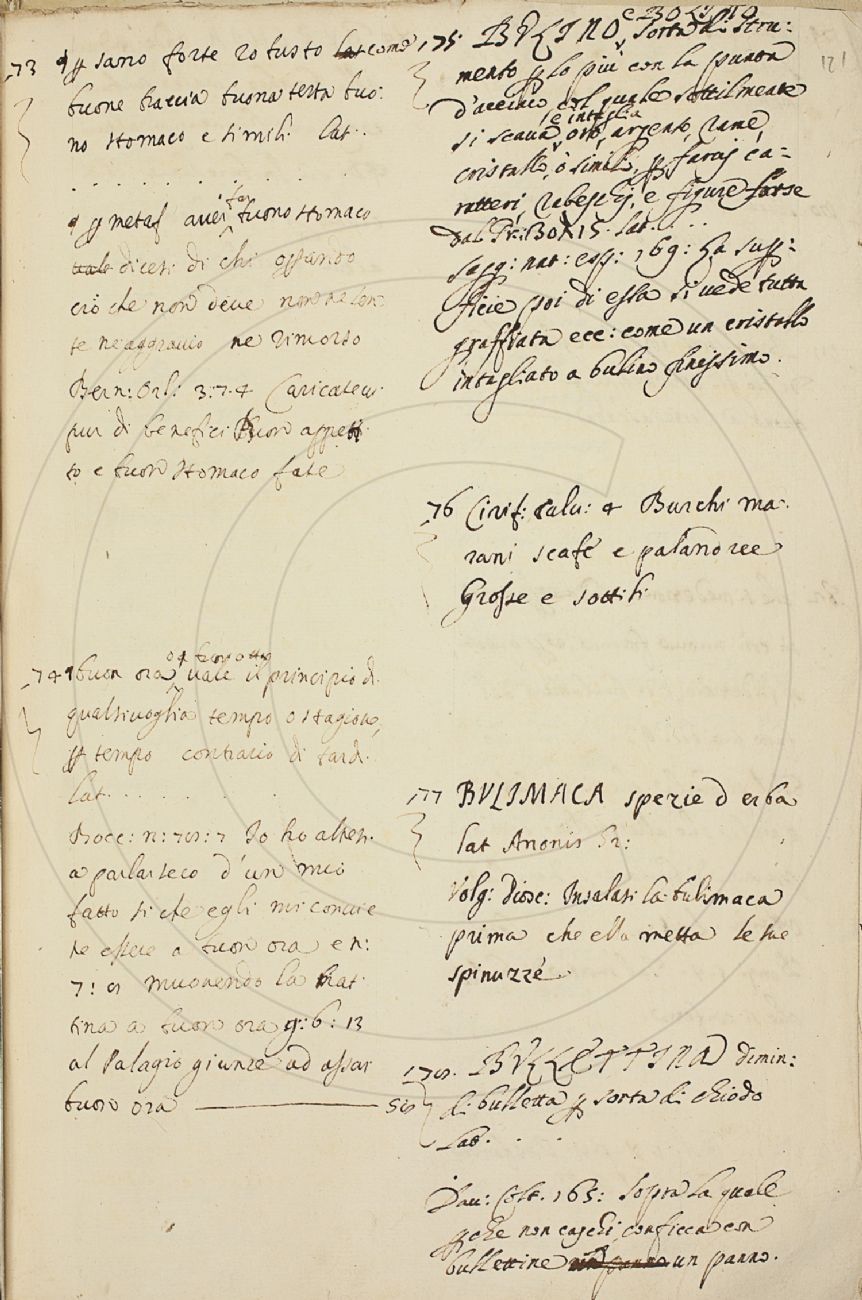 173 ¶ sano forte robusto lat come
buone braccia buona testa buo:
no stomaco e simili lat..
. . . . . . . . . .
¶ metaf aver far buono stomaco
vale dicesi di chi
ciò che non deve non ne sen
te ne aggravio ne rimorso
Bern: Orl: 3:7.4 Caricatevi
pur di benefici buon appeti
to e buon stomaco fate
174 ¶ buon ora vale il principio di
qualsivoglia tempo o stagione,
tempo contrario di tardi.
lat. . . . . .
Bocc: n: 78: 7 Io ho altresi
a parlar seco d'un mio
fatto si che egli mi convie
ne essere a buon ora e n:
7: muovendo la
tina a buon ora g: 6: 13
al Palagio giunse ad assai
buon ora ——
175 BULINO, e BOLINO sorta di stru:
mento p lo più con la punta
d'acciaio col quale sottilmente
si scava, e intaglia oro, argento, rame,
cristallo, o simili, p farvi ca=
ratteri, rabeschi, e figure forse
dal Lat. . . .
Sagg: nat: esp: 169: La supp:
ficie poi di essa si vede tutta
graffiata ecc: come un cristallo
intagliato a bulino finissimo.
176 Cirif: calu: 4 Burchi ma:
rani scafe e palandree
Grosse e sottili
177 BULIMACA spezie d erba
lat Anonis Gr:
Volg: Diosc: Insalasi la bulimaca
prima che ella metta le sue
spinuzze
178. BULLETTINA dimin:
di bulletta p sorta di chiodo
Lat. . .
Dav: Colt. 165: Sopra la quale
pche non caschi, conficca con
bullettine un panno.
121